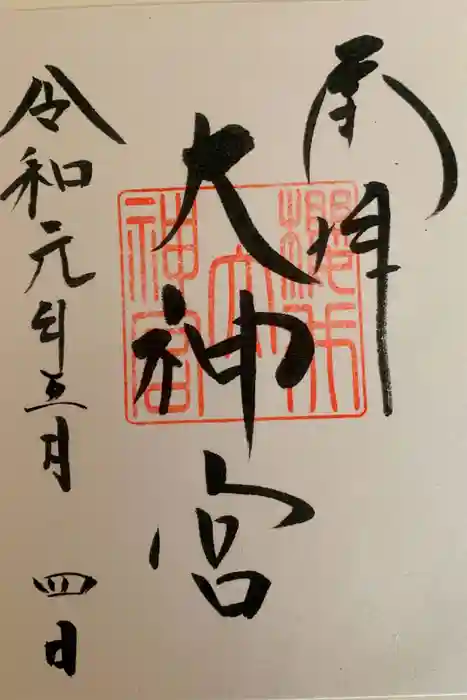 奉拝
大神宮
令和元年五月四日